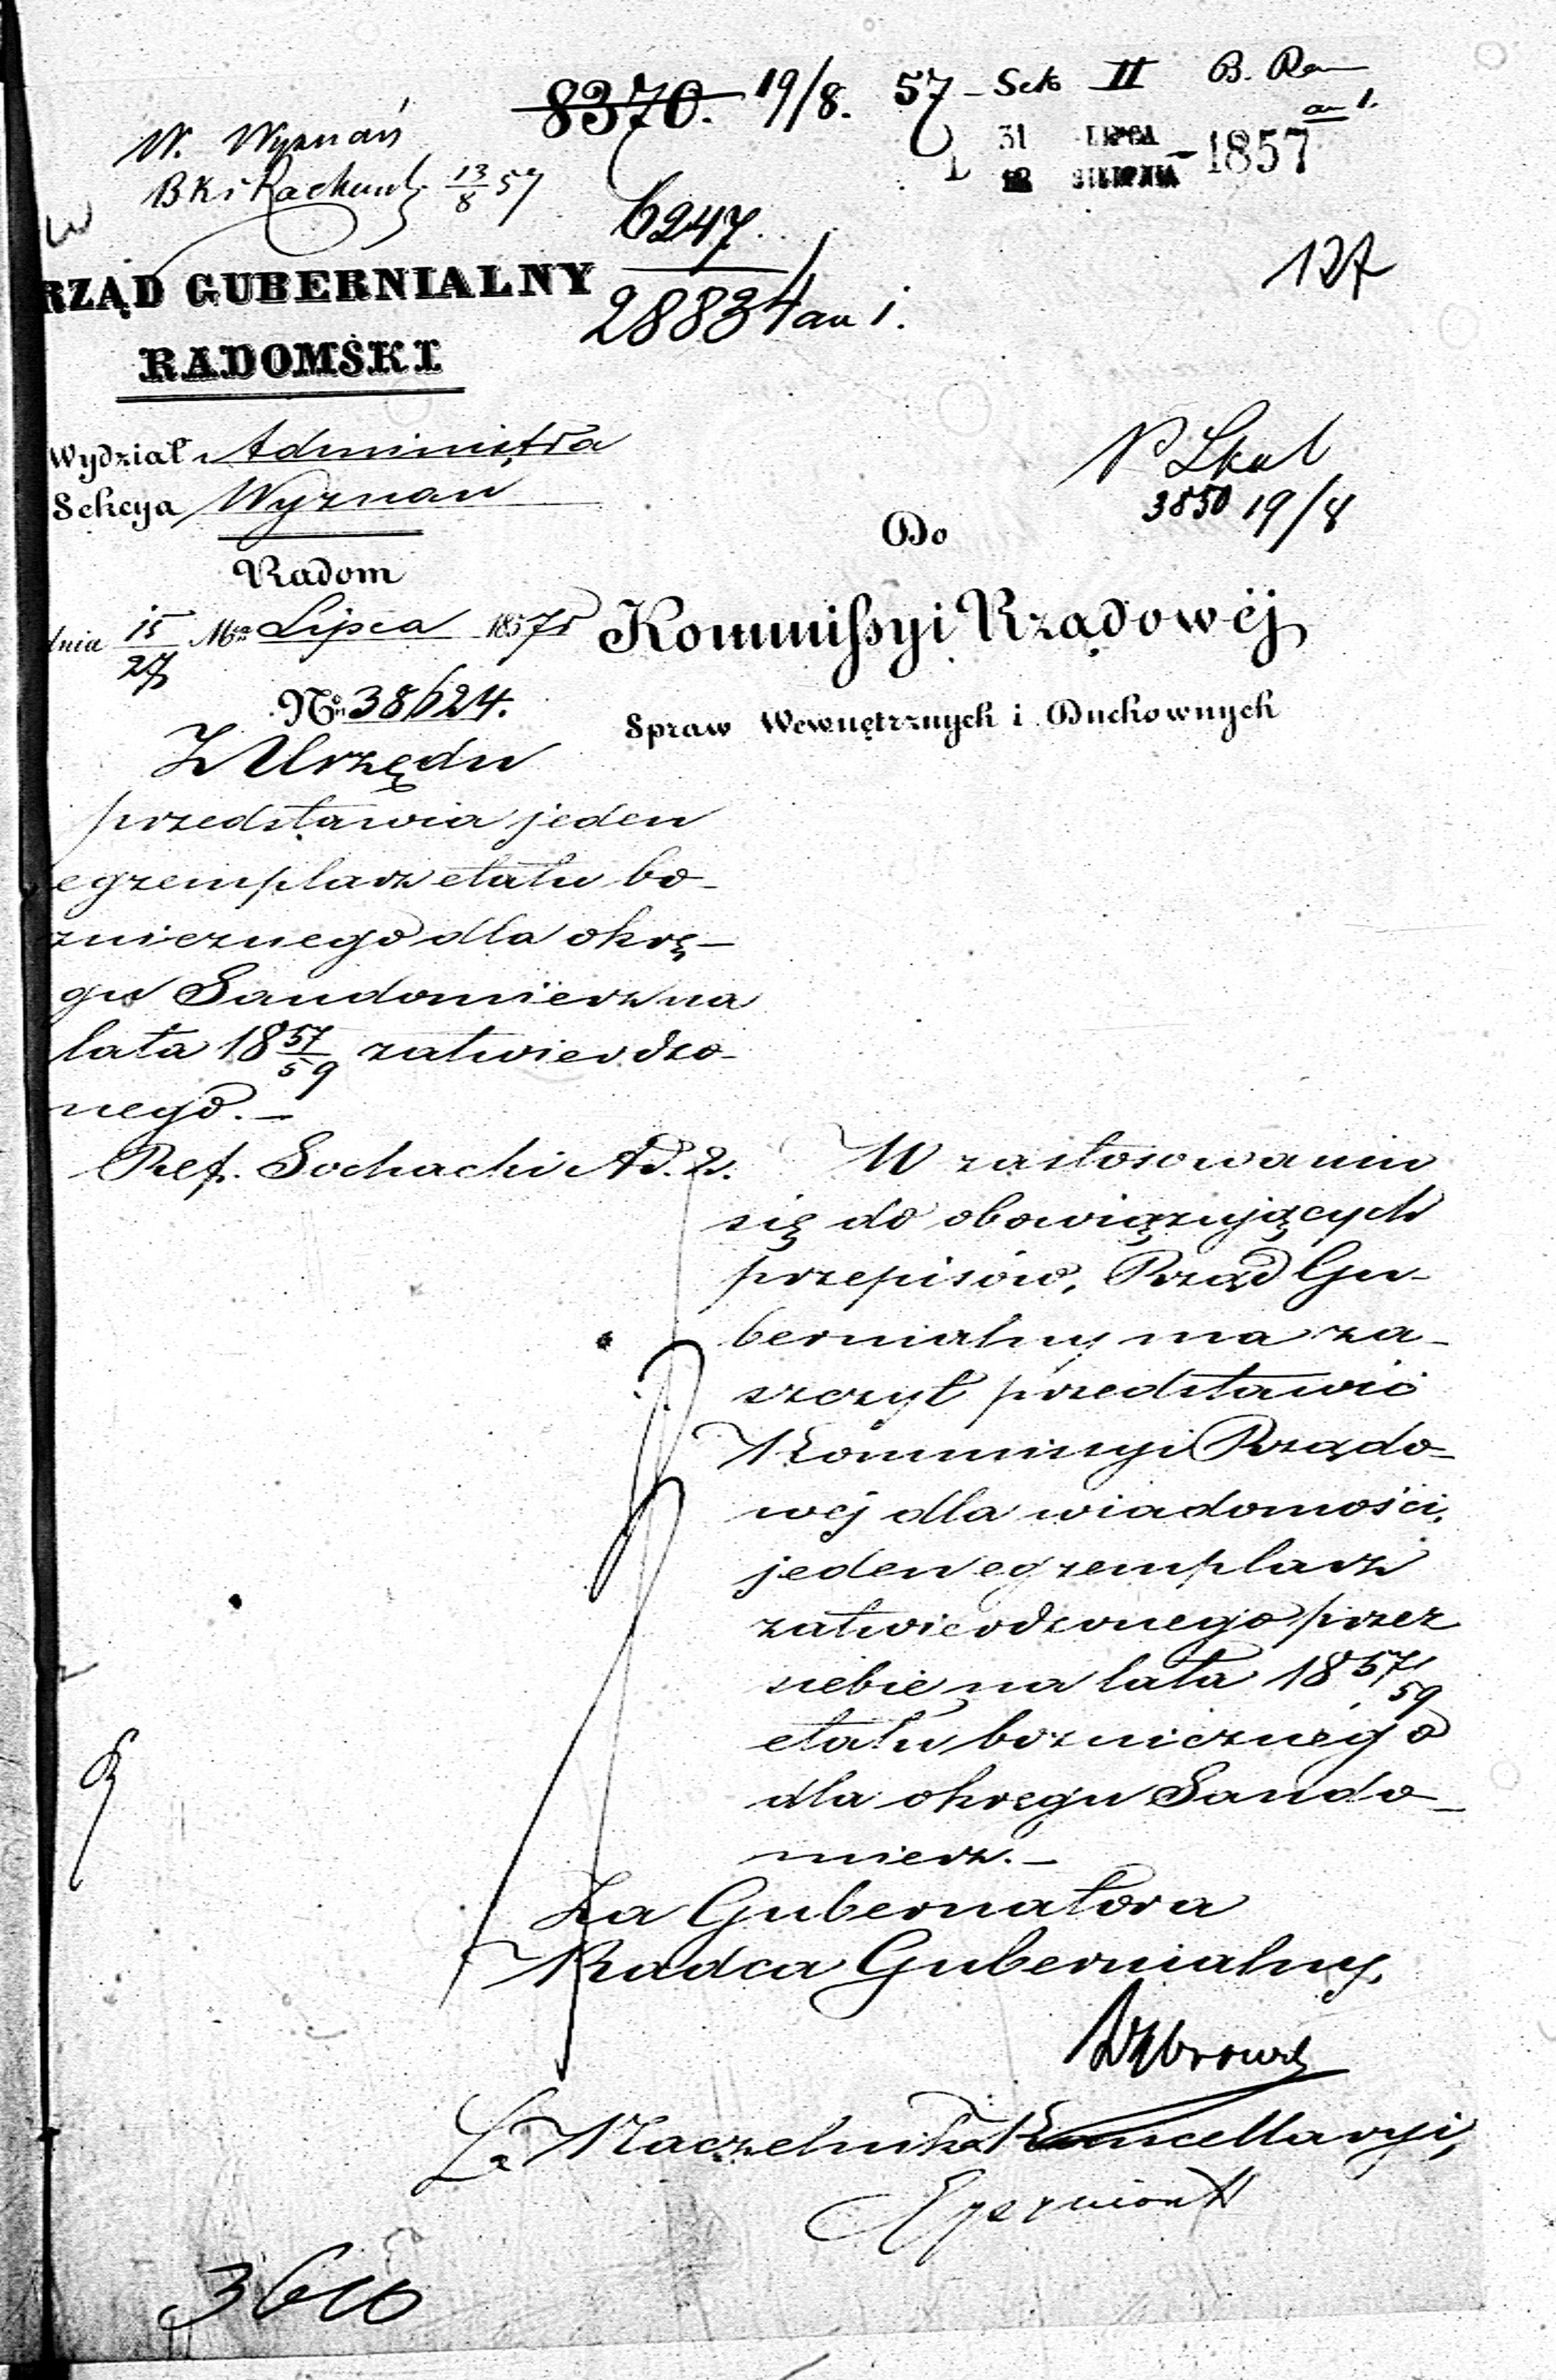 8370. 19/8. 57 - Sek II B. Ra
an 1.
W. Wyznań
B K i Rachund. 13/8 57
31 LIPCA
12 SIERPNIA 1857
6247
28834 an i.
127
RZĄD GUBERNIALNY
RADOMSKI
Wydział Administra
Sekcya Wyznan
Radom
dnia 15/27 Mca Lipca 1857 r
No 38624.
N Skal
3850 19/8
Do
Kommissyi Rządowéj
Spraw Wewnętrznych i Duchownych
Z Urzędu
przedstawia jeden
egzemplarz etatu bo-
znicznego dla okrę-
gu Sandomierz na
lata 1857/59 zatwierdzo-
nego. -
Ref. Sochacki Ad. 2.
W zastosowaniu
się do obowiązujących
przepisów, Rząd Gu-
bernialny ma za-
szczyt przedstawić
Kommissyi Rządo-
wéj dla wiadomości,
jeden egzemplarz
zatwierdzonego przez
siebie na lata 1857/59
etatu boznicznego
dla okręgu Sando-
mierz. -
Za Gubernatora
Radca Gubernialny,
Za Naczelnika Kancellaryi,
3610